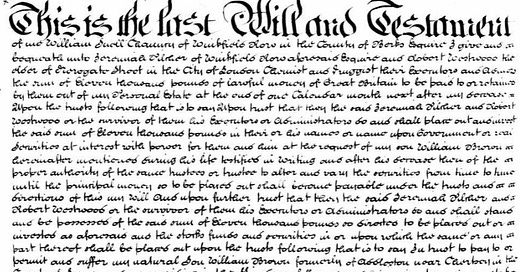 This is the last Will and Testament
of me William Snell Chauncy of Winkfield Row in the County of Berks Esquire I give and
bequeath unto Jeremiah Pilcher of Winkfield Row aforesaid Esquire and Robert Westwood the
elder of Newgate Street in the City of London Chemist and Druggist their Executors and Admors
the sum of Eleven thousand pounds of lawful money of Great Britain to be paid to or retained
by them out of my Personal Estate at the end of one Calendar month next after my decease
Upon the trusts following that is to say Upon trust that they the said Jeremiah Pilcher and Robert
Westwood or the survivor of them his Executors or Administrators do and shall place out and invest
the said sum of Eleven thousand pounds in their or his names or name upon Government or real
Securities at interest with power for them and him at the request of my son William Brown
hereinafter mentioned during his life testified in Writing and after his decease then of the
proper authority of the same trustees or trustee to alter and vary the securities from time to time
until the principal money so to be placed out shall become payable under the trusts and
directions of this my Will And upon further trust that they the said Jeremiah Pilcher and
Robert Westwood or the survivor of them his Executors or Administrators do and shall stand
and be possessed of the said sum of Eleven thousand pounds so directed to be placed out or
invested as aforesaid and the stocks funds and securities in or upon which the same or any
part thereof shall be placed out upon the trusts following that is to say In trust to pay to or
permit and suffer my natural Son William Brown formerly of near in the